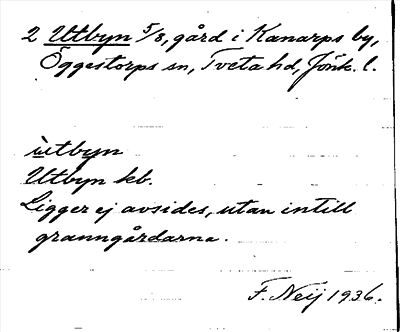 2 Utbyn 5/8, gård i Kanarps by,
Öggestorps sn, Tveta hd, Jönk. l.
ùtbyn
Utbyn kb.
Ligger ej avsides, utan intill
granngårdarna.
F. Neij 1936.